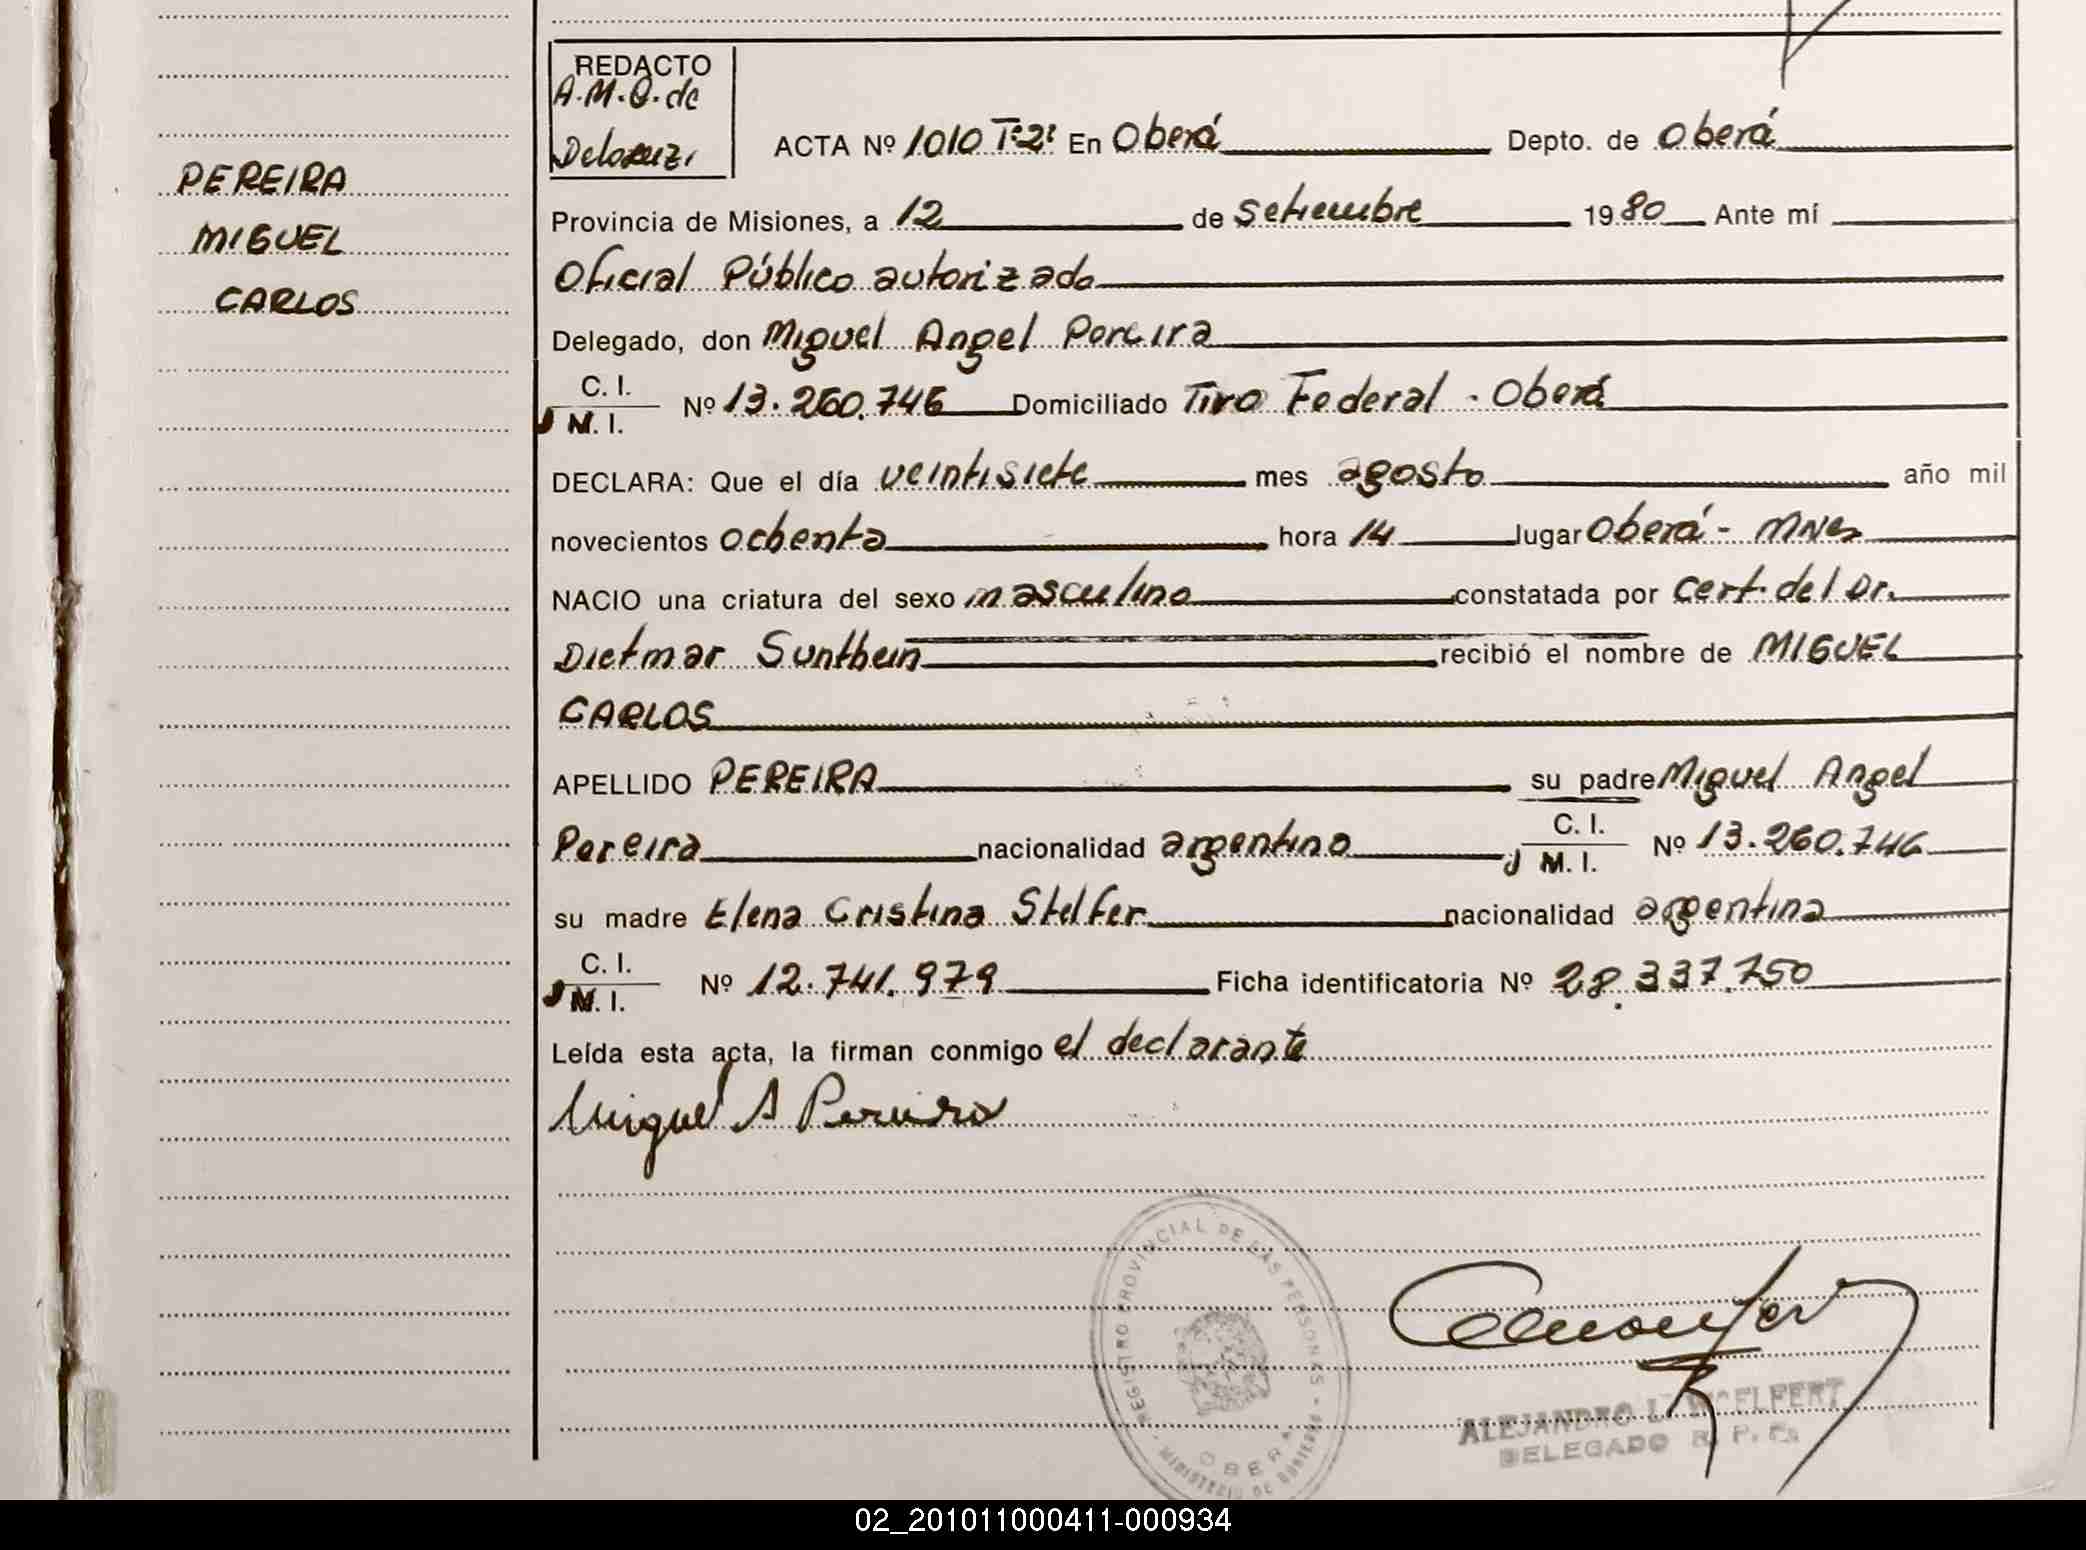 REDACTO
A.M.Q. de
Delosuzi
ACTA Nº 1010 Tº2º En Oberá Depto. de Oberá
PEREIRA
MIGUEL
CARLOS
Provincia de Misiones, a 12 de Setiembre 1980 Ante mí
Oficial Público autorizado
Delegado, don Miguel Angel Pereira
C. I.
M. I. Nº 13.260.746 Domiciliado Tiro Federal - Oberá
DECLARA: Que el día veintisiete mes agosto año mil
novecientos ochenta hora 14 lugar Oberá - MNes
NACIO una criatura del sexo masculino constatada por Cert. del Dr.
Dietmar Sunthein recibió el nombre de MIGUEL
CARLOS
APELLIDO PEREIRA su padre Miguel Angel
Pereira nacionalidad argentino C. I.
M. I. Nº 13.260.746
su madre Elena Cristina Stelfer nacionalidad argentina
C. I.
M. I. Nº 12.741.979 Ficha identificatoria Nº 28.337.750
Leída esta acta, la firman conmigo el declarante
Miguel A Pereira
REGISTRO PROVINCIAL DE LAS PERSONAS - MINISTERIO DE GOBIERNO -
OBERA
ALEJANDRO L.
DELEGADO R. P. Ps
02_201011000411-000934